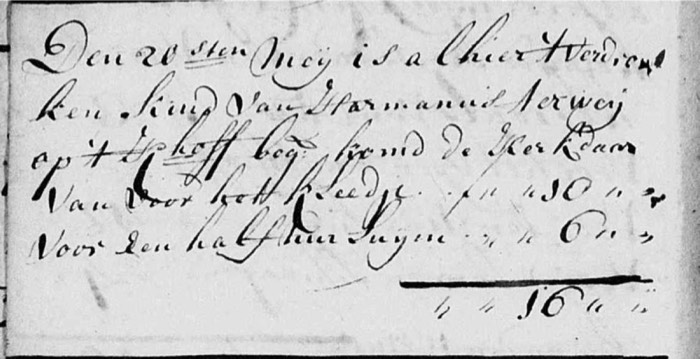 Den 20sten Meij is alhier t verdron
ken kind van Harmanus terweij
op 't Kp hoff beg: komd de Kerk daar
van voor het kleedje f " " 10 " "
voor een half uur luyen " " 6 " "
" " 16 " "